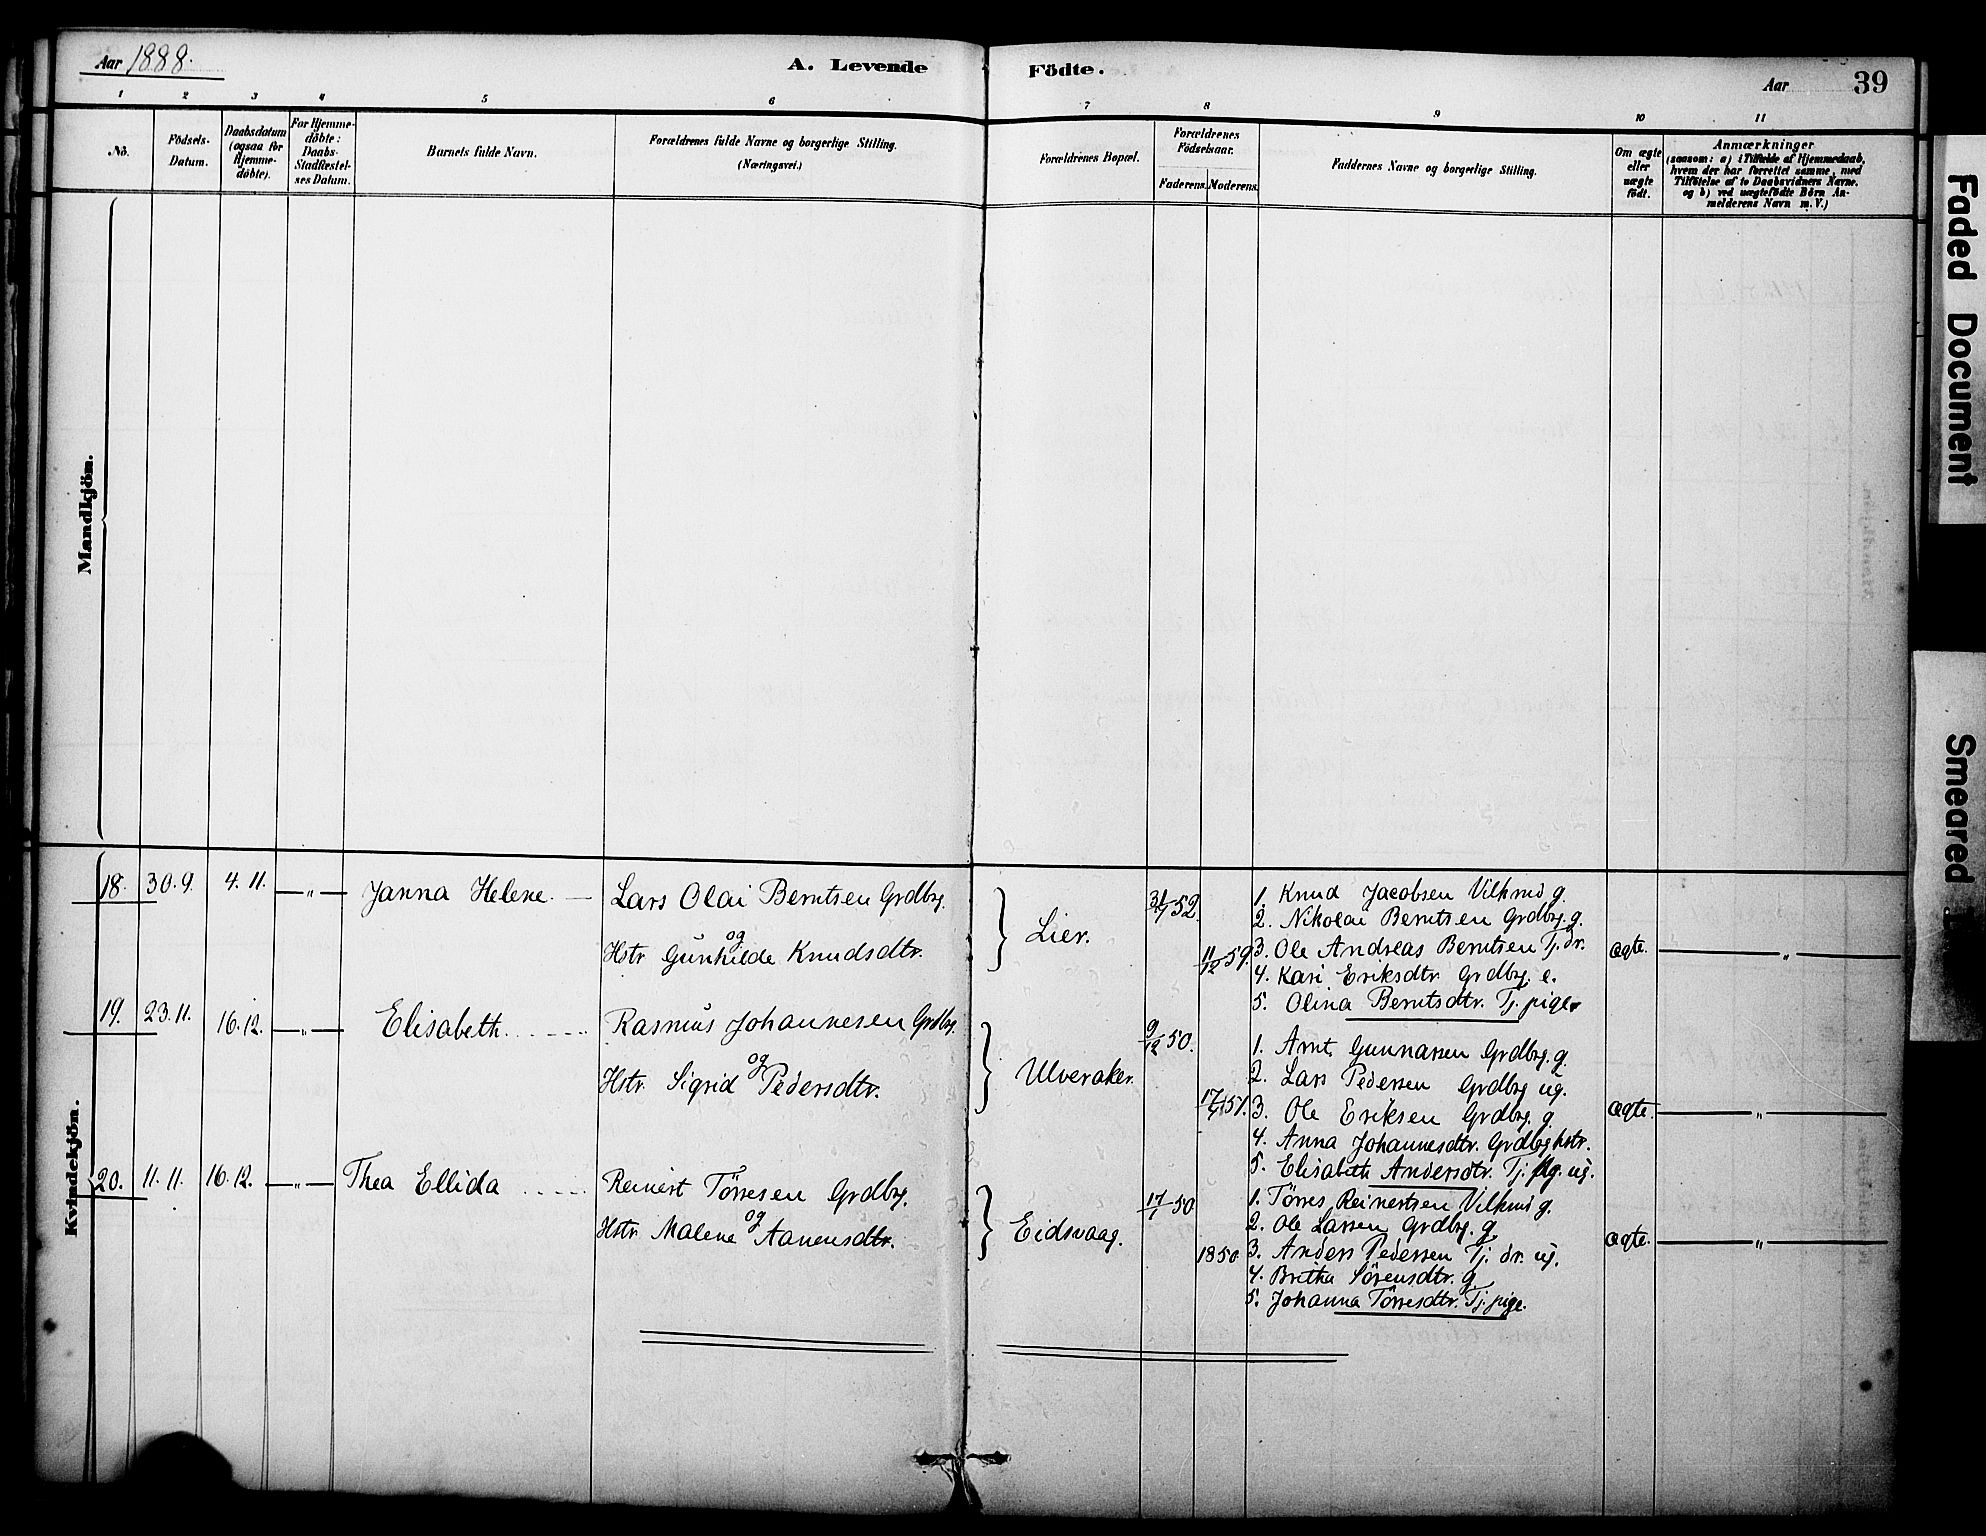 Aar 1888.
A. Levende Födte.
Aar 39
1 2 3 4 5 6 7 8 9 10 11
No.
Födsels-
Datum.
Daabsdatum
(ogsaa for
Hjemme-
döbte).
For Hjemme-
döbte:
Daabs-
Stadfæstel-
ses Datum.
Barnets fulde Navn.
Forældrenes fulde Navne og borgerlige Stilling.
(Næringsvei.)
Forældrenes Bopæl.
Forældrenes
Födselsaar.
Faderens. Moderens.
Faddernes Navne og borgerlige Stilling.
Om ægte
eller
uægte
födt.
Anmærkninger
(saasom: a) i Tilfælde af Hjemmedaab,
hvem der har forrettet samme, med
Tilföielse af to Daabsvidners Navne,
og b) ved uægtefödte Börn An-
melderens Navn m. V.)
Mandkjön.
Kvindekjön.
18. 30.9. 4.11. — „ — Janna Helene. — Lars Olai Berntsen Grdbrg.
og
Hstr Gunhilde Knudsdtr.
Lier.
31/7 52.
11/12 59.
1. Knud Jacobsen Vilknes g.
2. Nikolai Berntsen Grdbrg. g.
3. Ole Andreas Berntsen Tj. dr.
4. Kari Eriksdtr. Grdbrg. e.
5. Olina Berntsdtr. Tj. pige
ægte. — „ —
19. 23.11. 16.12. — „ — Elisabeth. Rasmus Johannesen Grdbrg.
og
Hstr. Sigrid Pedersdtr.
Ulveraker.
9/12 50.
1. Arnt Gunnarsen Grdbrg. g.
2. Lars Pedersen Grdbrg ug.
3. Ole Eriksen Grdbrg. g
4. Anna Johannesdtr. Grdbrg hstr.
5. Elisabeth Andersdtr. Tj. pg. ug.
ægte. — „ —
20. 11.11. 16.12. — „ — Thea Ellida Reinert Törresen Grdbrg.
og
Hstr. Malene Aanensdtr.
Eidsvaag.
17/1 50
1850
1. Törres Reinertsen Vilknes g.
2. Ole Larsen Grdbrg. g.
3. Anders Pedersen Tj. dr. ug.
4. Britha Sörensdtr. g.
5. Johanna Törresdtr. Tj. pige.
ægte. — „ —
Faded Document
Smeared